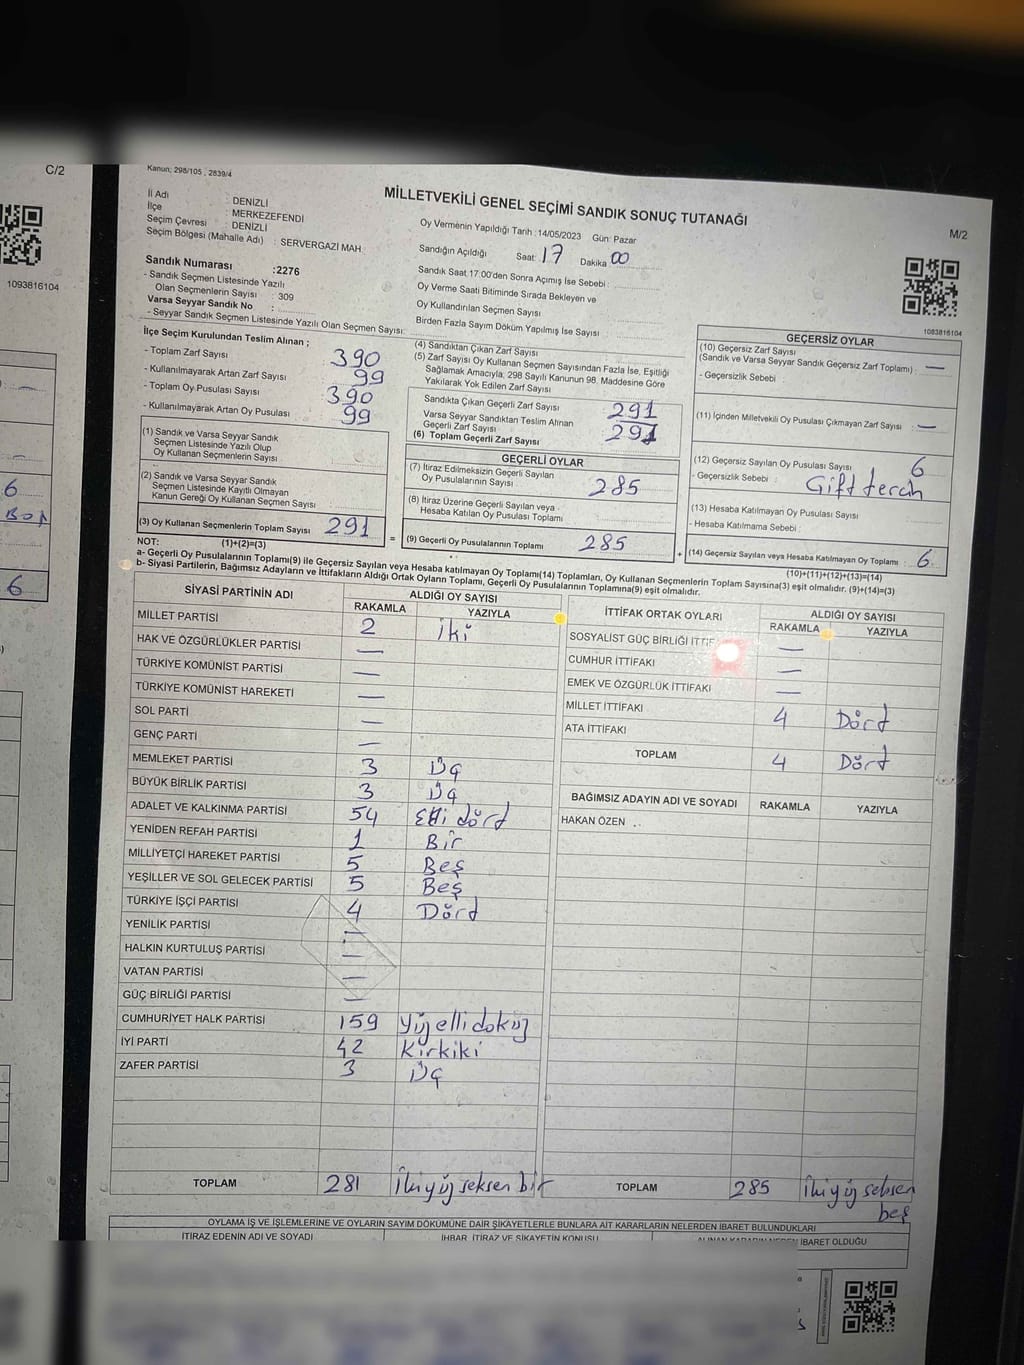 C/2
1093816104
6
Boş
6
Kanun; 298/105 , 2839/4
MİLLETVEKİLİ GENEL SEÇİMİ SANDIK SONUÇ TUTANAĞI
M/2
İl Adı : DENİZLİ
İlçe : MERKEZEFENDİ
Seçim Çevresi : DENİZLİ
Seçim Bölgesi (Mahalle Adı) : SERVERGAZİ MAH.
Sandık Numarası :2276
- Sandık Seçmen Listesinde Yazılı
Olan Seçmenlerin Sayısı : 309
Varsa Seyyar Sandık No :
- Seyyar Sandık Seçmen Listesinde Yazılı Olan Seçmen Sayısı:
Oy Vermenin Yapıldığı Tarih : 14/05/2023 Gün: Pazar
Sandığın Açıldığı Saat: 17 Dakika 00
Sandık Saat 17:00'den Sonra Açımış İse Sebebi :
Oy Verme Saati Bitiminde Sırada Bekleyen ve
Oy Kullandırılan Seçmen Sayısı
Birden Fazla Sayım Döküm Yapılmış İse Sayısı
1083816104
İlçe Seçim Kurulundan Teslim Alınan ;
- Toplam Zarf Sayısı 390
- Kullanılmayarak Artan Zarf Sayısı 99
- Toplam Oy Pusulası Sayısı 390
- Kullanılmayarak Artan Oy Pusulası 99
(1) Sandık ve Varsa Seyyar Sandık
Seçmen Listesinde Yazılı Olup
Oy Kullanan Seçmenlerin Sayısı
(2) Sandık ve Varsa Seyyar Sandık
Seçmen Listesinde Kayıtlı Olmayan
Kanun Gereği Oy Kullanan Seçmen Sayısı
(3) Oy Kullanan Seçmenlerin Toplam Sayısı 291
(1)+(2)=(3)
(4) Sandıktan Çıkan Zarf Sayısı
(5) Zarf Sayısı Oy Kullanan Seçmen Sayısından Fazla İse, Eşitliği
Sağlamak Amacıyla; 298 Sayılı Kanunun 98. Maddesine Göre
Yakılarak Yok Edilen Zarf Sayısı
Sandıkta Çıkan Geçerli Zarf Sayısı 291
Varsa Seyyar Sandıktan Teslim Alınan
Geçerli Zarf Sayısı
(6) Toplam Geçerli Zarf Sayısı 291
GEÇERLİ OYLAR
(7) İtiraz Edilmeksizin Geçerli Sayılan
Oy Pusulalarının Sayısı 285
(8) İtiraz Üzerine Geçerli Sayılan veya
Hesaba Katılan Oy Pusulası Toplamı
= (9) Geçerli Oy Pusulalarının Toplamı 285
GEÇERSİZ OYLAR
(10) Geçersiz Zarf Sayısı
(Sandık ve Varsa Seyyar Sandık Geçersiz Zarf Toplamı) : —
- Geçersizlik Sebebi :
(11) İçinden Milletvekili Oy Pusulası Çıkmayan Zarf Sayısı : —
(12) Geçersiz Sayılan Oy Pusulası Sayısı 6
- Geçersizlik Sebebi : Çift tercih
(13) Hesaba Katılmayan Oy Pusulası Sayısı
- Hesaba Katılmama Sebebi :
+ (14) Geçersiz Sayılan veya Hesaba Katılmayan Oy Toplamı : 6
(10)+(11)+(12)+(13)=(14)
NOT:
a- Geçerli Oy Pusulalarının Toplamı(9) ile Geçersiz Sayılan veya Hesaba katılmayan Oy Toplamı(14) Toplamları, Oy Kullanan Seçmenlerin Toplam Sayısına(3) eşit olmalıdır. (9)+(14)=(3)
b- Siyasi Partilerin, Bağımsız Adayların ve İttifakların Aldığı Ortak Oyların Toplamı, Geçerli Oy Pusulalarının Toplamına(9) eşit olmalıdır.
SİYASİ PARTİNİN ADI ALDIĞI OY SAYISI
RAKAMLA YAZIYLA
MİLLET PARTİSİ 2 iki
HAK VE ÖZGÜRLÜKLER PARTİSİ —
TÜRKİYE KOMÜNİST PARTİSİ —
TÜRKİYE KOMÜNİST HAREKETİ —
SOL PARTİ —
GENÇ PARTİ —
MEMLEKET PARTİSİ 3 Üç
BÜYÜK BİRLİK PARTİSİ 3 Üç
ADALET VE KALKINMA PARTİSİ 54 Elli dört
YENİDEN REFAH PARTİSİ 1 Bir
MİLLİYETÇİ HAREKET PARTİSİ 5 Beş
YEŞİLLER VE SOL GELECEK PARTİSİ 5 Beş
TÜRKİYE İŞÇİ PARTİSİ 4 Dört
YENİLİK PARTİSİ —
HALKIN KURTULUŞ PARTİSİ —
VATAN PARTİSİ —
GÜÇ BİRLİĞİ PARTİSİ —
CUMHURİYET HALK PARTİSİ 159 Yüz elli dokuz
İYİ PARTİ 42 Kırkiki
ZAFER PARTİSİ 3 Üç
TOPLAM 281 İkiyüz seksen bir
İTTİFAK ORTAK OYLARI ALDIĞI OY SAYISI
RAKAMLA YAZIYLA
SOSYALİST GÜÇ BİRLİĞİ —
CUMHUR İTTİFAKI —
EMEK VE ÖZGÜRLÜK İTTİFAKI —
MİLLET İTTİFAKI 4 Dört
ATA İTTİFAKI
TOPLAM 4 Dört
BAĞIMSIZ ADAYIN ADI VE SOYADI RAKAMLA YAZIYLA
HAKAN ÖZEN
TOPLAM 285 İkiyüz seksen
beş
OYLAMA İŞ VE İŞLEMLERİNE VE OYLARIN SAYIM DÖKÜMÜNE DAİR ŞİKAYETLERLE BUNLARA AİT KARARLARIN NELERDEN İBARET BULUNDUKLARI
İTİRAZ EDENİN ADI VE SOYADI İHBAR, İTİRAZ VE ŞİKAYETİN KONUSU ALINAN KARARIN NEDEN İBARET OLDUĞU